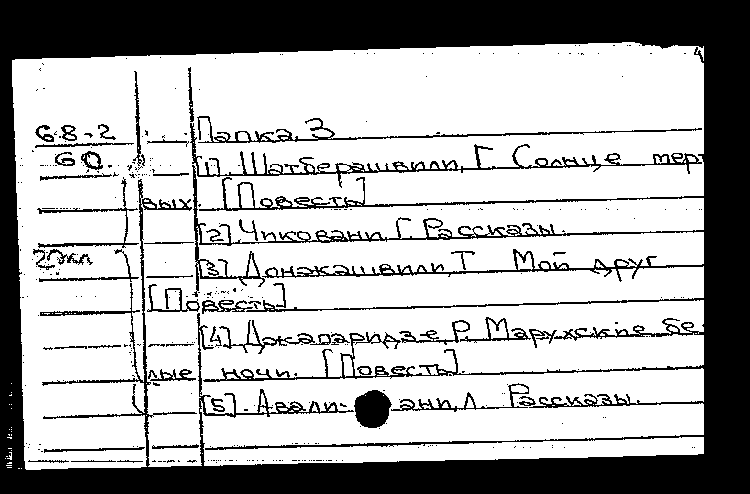 68-2 Папка, 3
60. [1]. Шатберашвили, Г. Солнце мерт
вых. [Повесть]
[2]. Чиковани, Г. Рассказы.
[3]. Донакашвили, Т. Мой друг
[Повесть].
[4]. Джапаридзе, Р. Марухские бе-
лые ночи. [Повесть].
[5]. Авали- ани, Л. Рассказы.